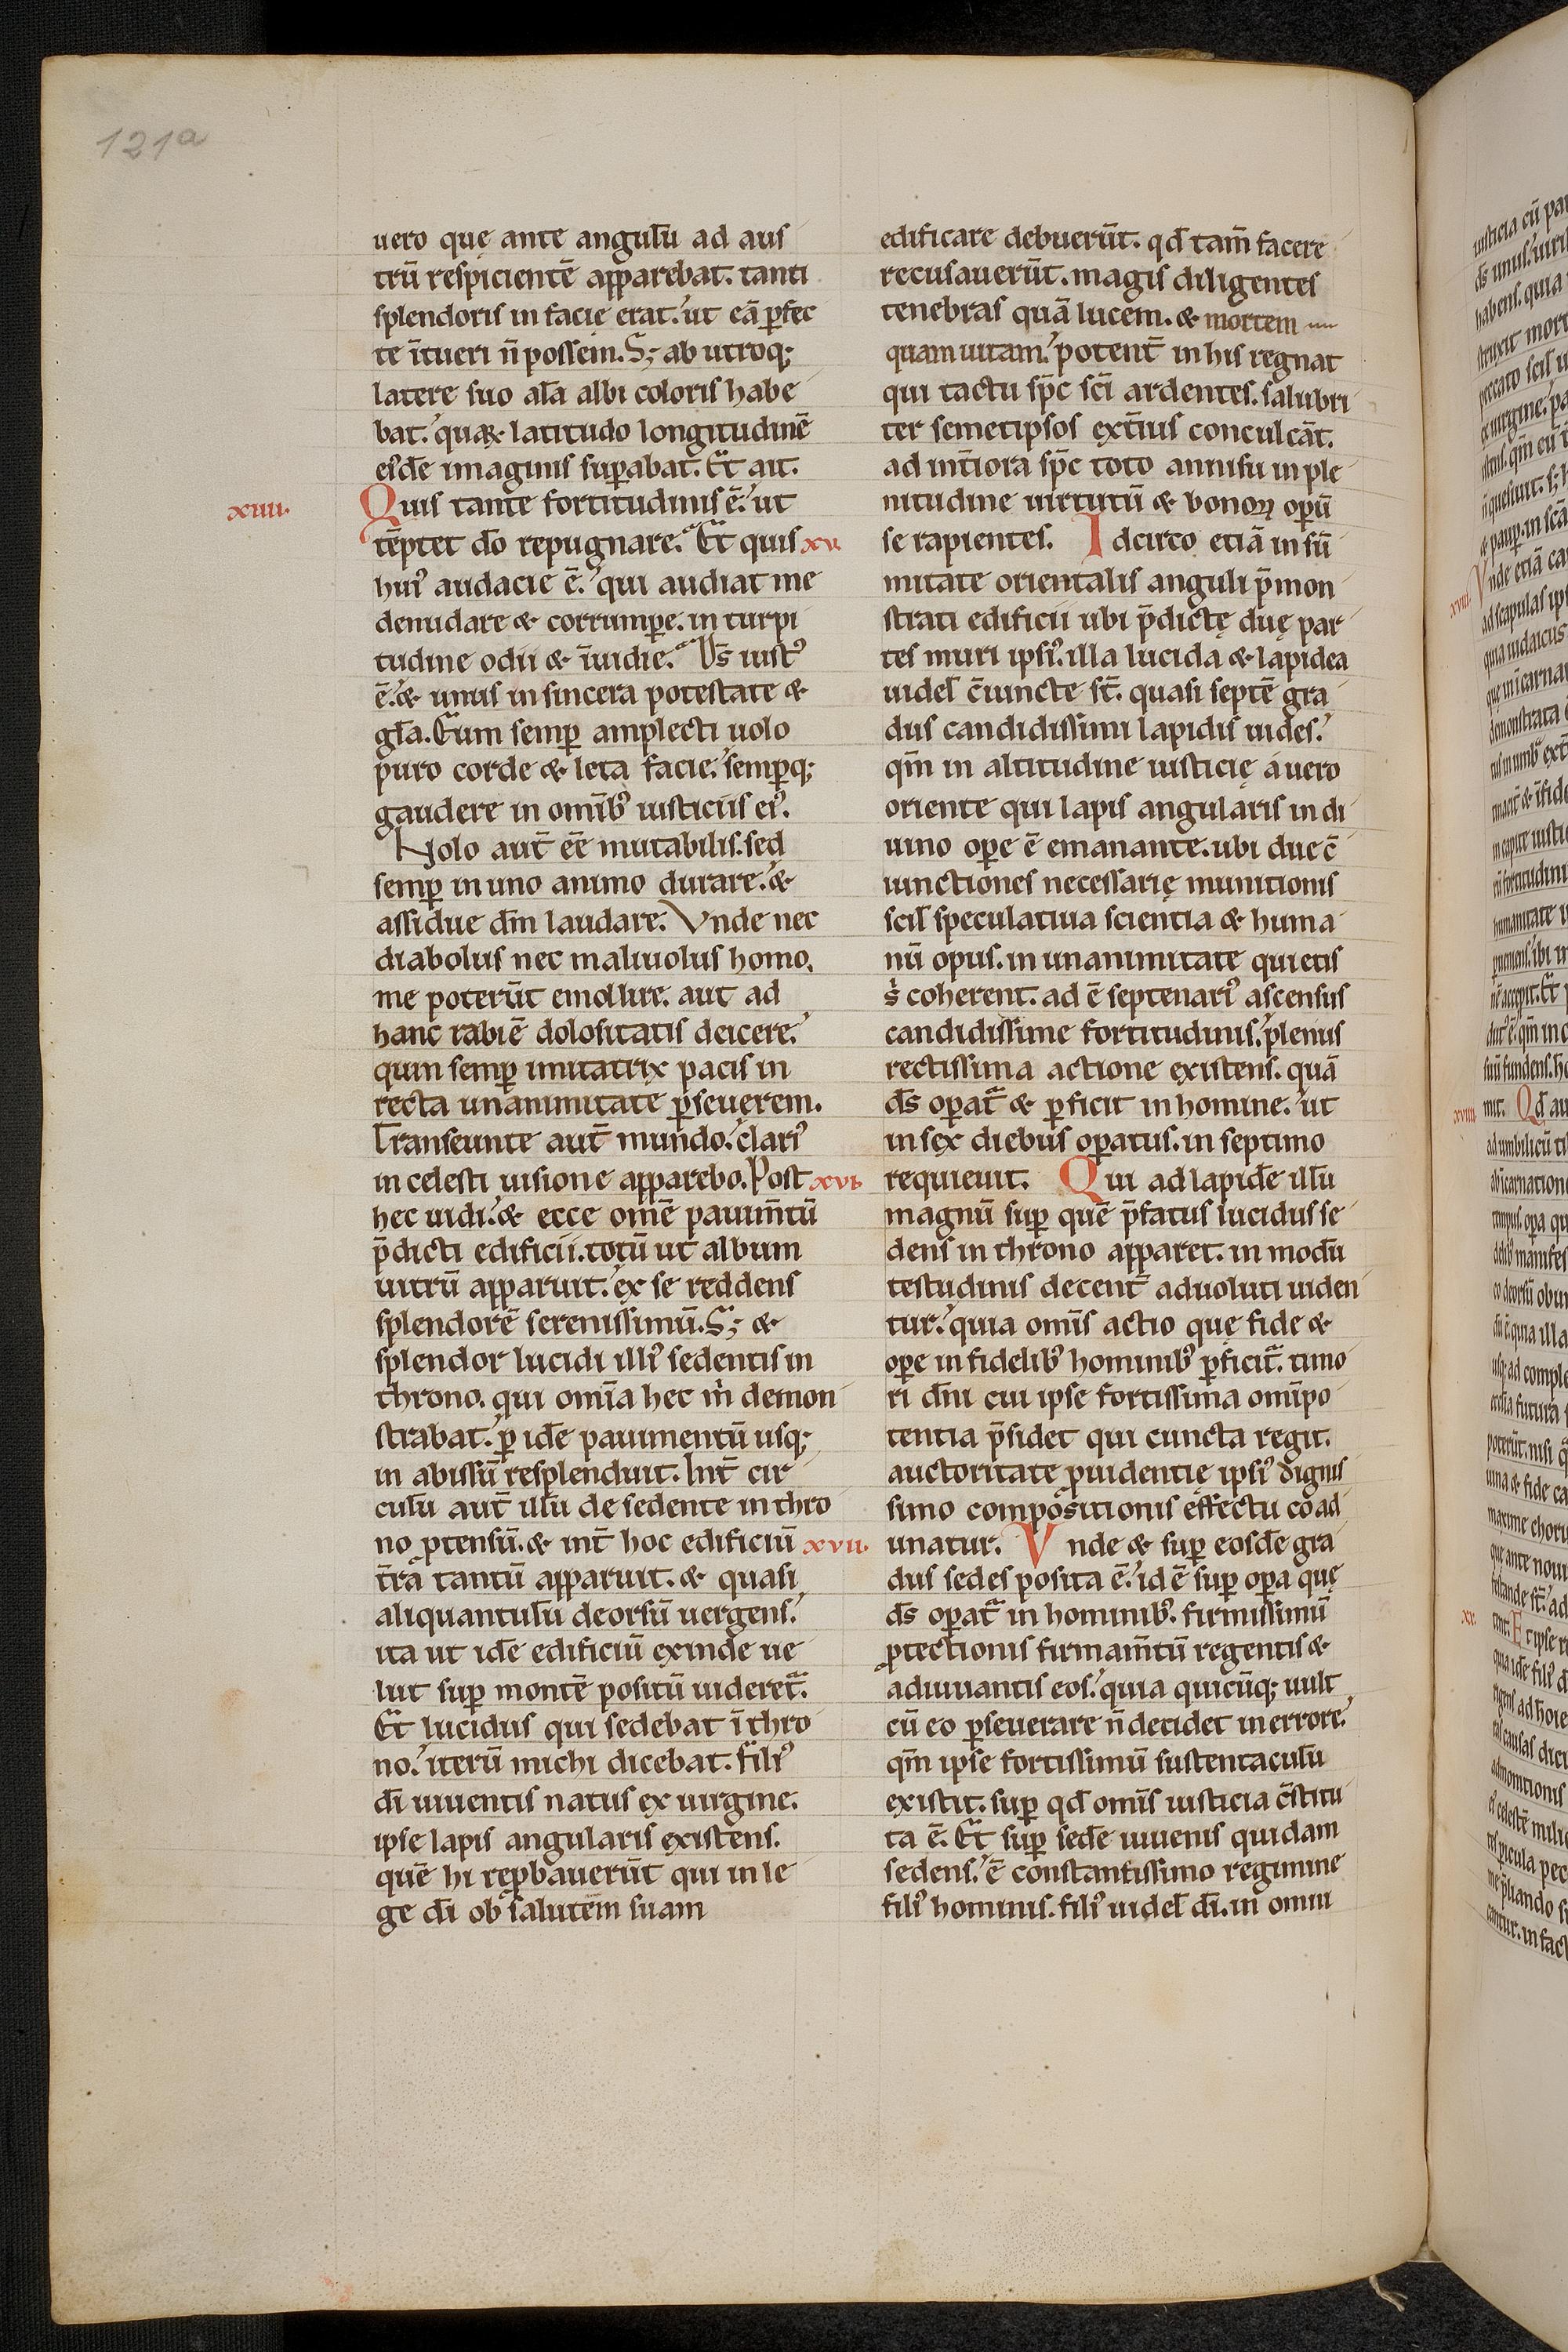 121a
uero quę ante angulū ad aus
trū respicientē apparebat. tanti
splendoris in facie erat. ut eā ꝑfec
te ītueri n̄ possem. S; ab utroq;
latere suo alā albi coloris habe
bat. quaꝝ latitudo longitudinē
eiꝰdē imaginis suꝑabat. Et ait.
xiiii. Quis tante fortitudinis ē. ut
tēptet dō repugnare. Et quis xv.
huiꝰ audacie ē. qui audiat me
denudare & corrumꝑe. in turpi
tudine odii & īuidie. Ds̄ iustꝰ
ē. & unus in sincera potestate &
gl̄a. Eum semꝑ amplecti uolo
puro corde & leta facie. semꝑq;
gaudere in omībꝰ iusticiis eiꝰ.
Nolo aut̄ ēē mutabilis. sed
semꝑ in uno animo durare. &
assidue dm̄ laudare. Vnde nec
diabolus nec maliuolus homo,
me poterūt emollire. aut ad
hanc rabiē dolositatis deicere.
quin semꝑ imitatrix pacis in
recta unanimitate ꝑseuerem.
Transeunte aut̄ mundo. clariꝰ
in celesti uisione apparebo. Post xvi.
hec uidi. & ecce omē pauim̄tū
p̄dicti edificii. totū ut album
uitrū apparuit. ex se reddens
splendorē serenissimū. S; &
splendor lucidi illiꝰ sedentis in
throno. qui omīa hec m̄ demon
strabat. ꝑ idē pauimentū usq;
in abissū resplenduit. Int̄ cir
culū aut̄ illū de sedente in thro
no ꝓtensū. & int̄ hoc edificiū xvii.
t̄ra tantū apparuit. & quasi
aliquantulū deorsū uergens.
ita ut idē edificiū exinde ue
lut suꝑ montē positū uideret̄.
Et lucidus qui sedebat ī thro
no. iterū michi dicebat. filiꝰ
dī uiuentis natus ex uirgine.
ipse lapis angularis existens.
quē hi reꝓbauerūt qui in le
ge dī ob salutem suam
edificare debuerūt. qd̄ tam̄ facere
recusauerūt. magis diligentes
tenebras quā lucem. & mortem
quam uitam. potent̄ in his regnat
qui tactu sp̄c sc̄i ardentes. salubri
ter semetipsos ext̄ius conculcāt.
ad int̄iora sp̄c toto annisu in ple
nitudine uirtutū & bonoꝝ oꝑū
se rapientes. Idcirco etiā in sū
mitate orientalis anguli p̄mon
strati edificii ubi p̄dictę duę par
tes muri ipsiꝰ. illa lucida & lapidea
uidel̄ c̄iuncte st̄. quasi septē gra
dus candidissimi lapidis uides.
qm̄ in altitudine iusticię a uero
oriente qui lapis angularis in di
uino oꝑe ē emanante. ubi due c̄
iunctiones necessarię munitionis
scil̄ speculatiua scientia & huma
nū opus. in unanimitate quietis
s̄ coherent. ad ē septenariꝰ ascensus
candidissime fortitudinis. plenus
rectissima actione existens. quā
ds̄ oꝑat̄ & ꝑficit in homine. ut
in sex diebus oꝑatus. in septimo
requieuit. Qui ad lapidē illū
magnū suꝑ quē p̄fatus lucidus se
dens in throno apparet. in modū
testudinis decent̄ aduoluti uiden
tur. quia omīs actio quę fide &
oꝑe in fidelibꝰ hominibꝰ ꝑficit̄. timo
ri dn̄i cui ipse fortissima omīpo
tentia p̄sidet qui cuncta regit.
auctoritate ꝓuidentię ipsiꝰ dignis
simo compositionis effectu cōad
unatur. Vnde & suꝑ eosdē gra
dus sedes posita ē. id ē suꝑ oꝑa quę
ds̄ oꝑat̄ in hominibꝰ. firmissimū
ꝓtectionis firmam̄tū regentis &
adiuuantis eos. quia quicūq; uult
cū eo ꝑseuerare n̄ decidet in errorē.
qm̄ ipse fortissimū sustentaculū
existit. suꝑ qd̄ omīs iusticia c̄stitu
ta ē. Et suꝑ sedē iuuenis quidam
sedens. ē constantissimo regimine
filiꝰ hominis. filiꝰ uidel̄ dī. in omni